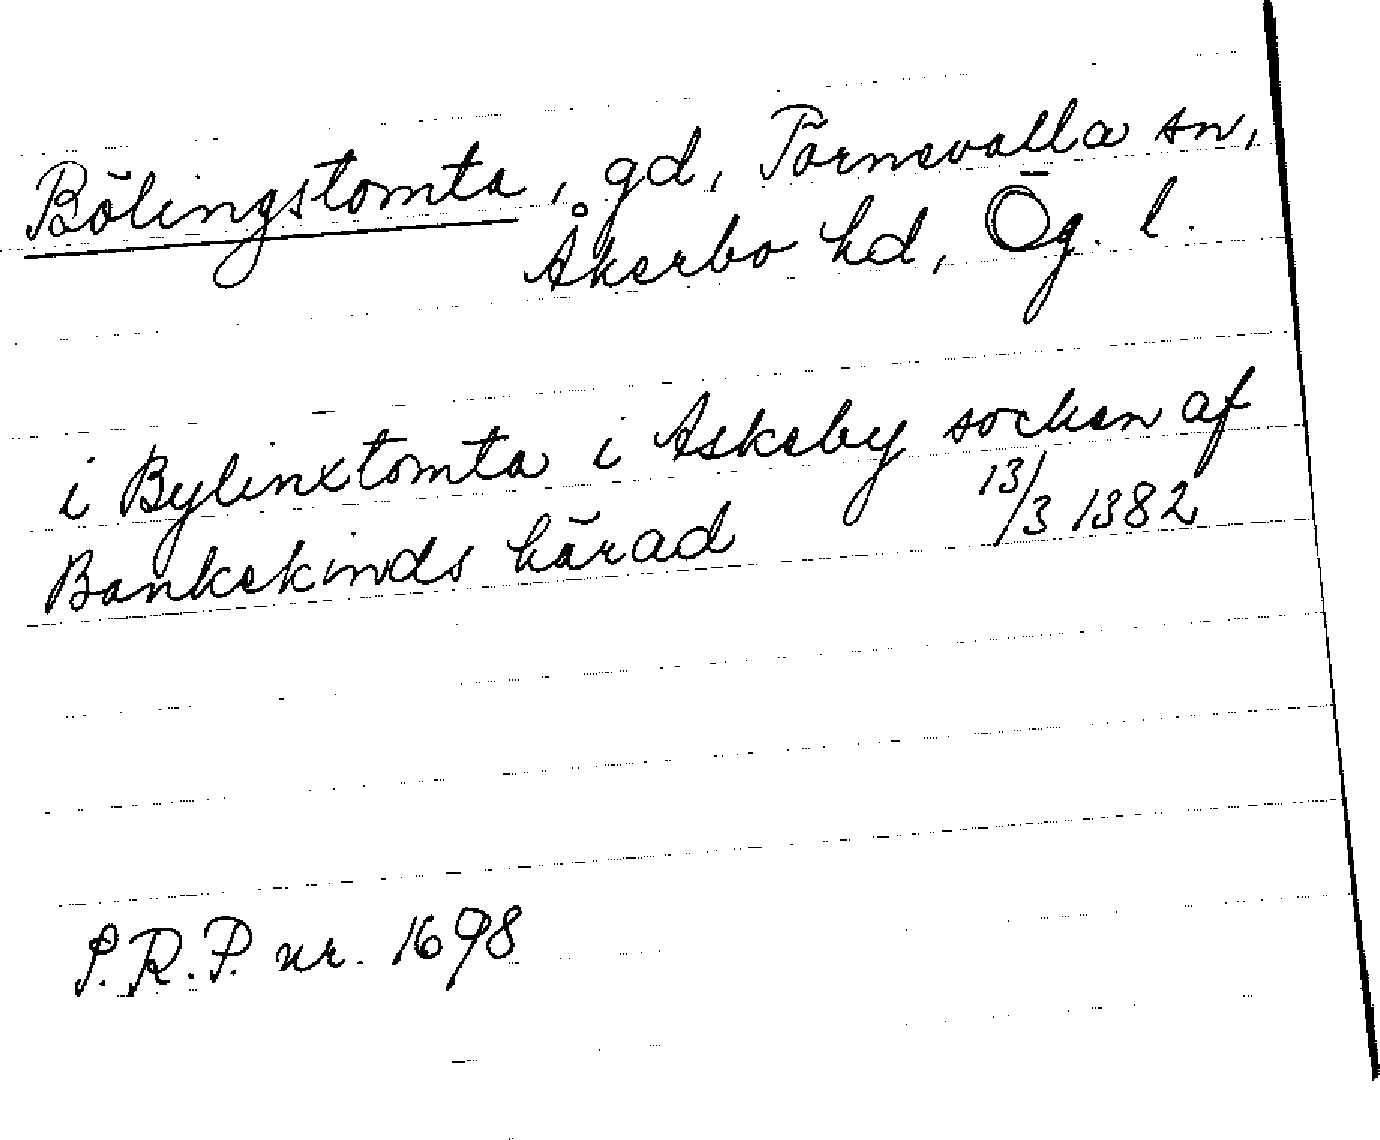 Bölingstomta, gd, Törnevalla sn,
Åkerbo hd, Ög. l.
i Bylinxtomta i Askeby socken af
Bankekinds härad 13/3 1382
S.R.P. nr. 1698